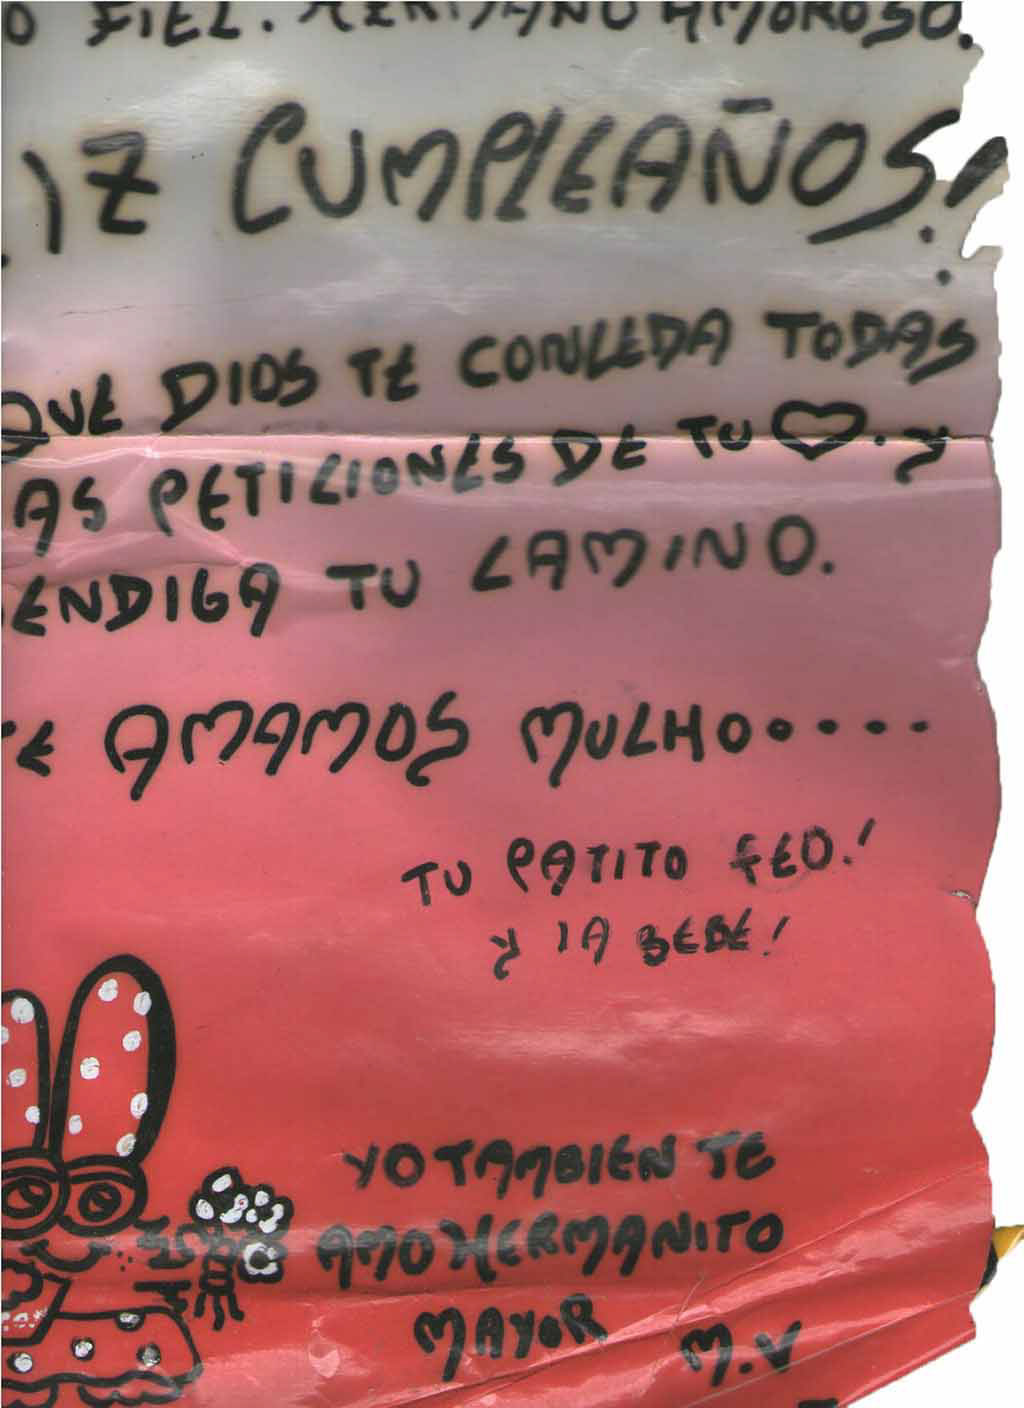 O FIEL. HERMANO AMOROSO.
IZ CUMPLEAÑOS!
QUE DIOS TE CONCEDA TODAS
AS PETICIONES DE TU ♡. Y
ENDIGA TU CAMINO.
E AMAMOS MUCHO.....
TU PATITO FEO!
Y LA BEBE!
YO TAMBIEN TE
AMO HERMANITO
MAYOR M.V